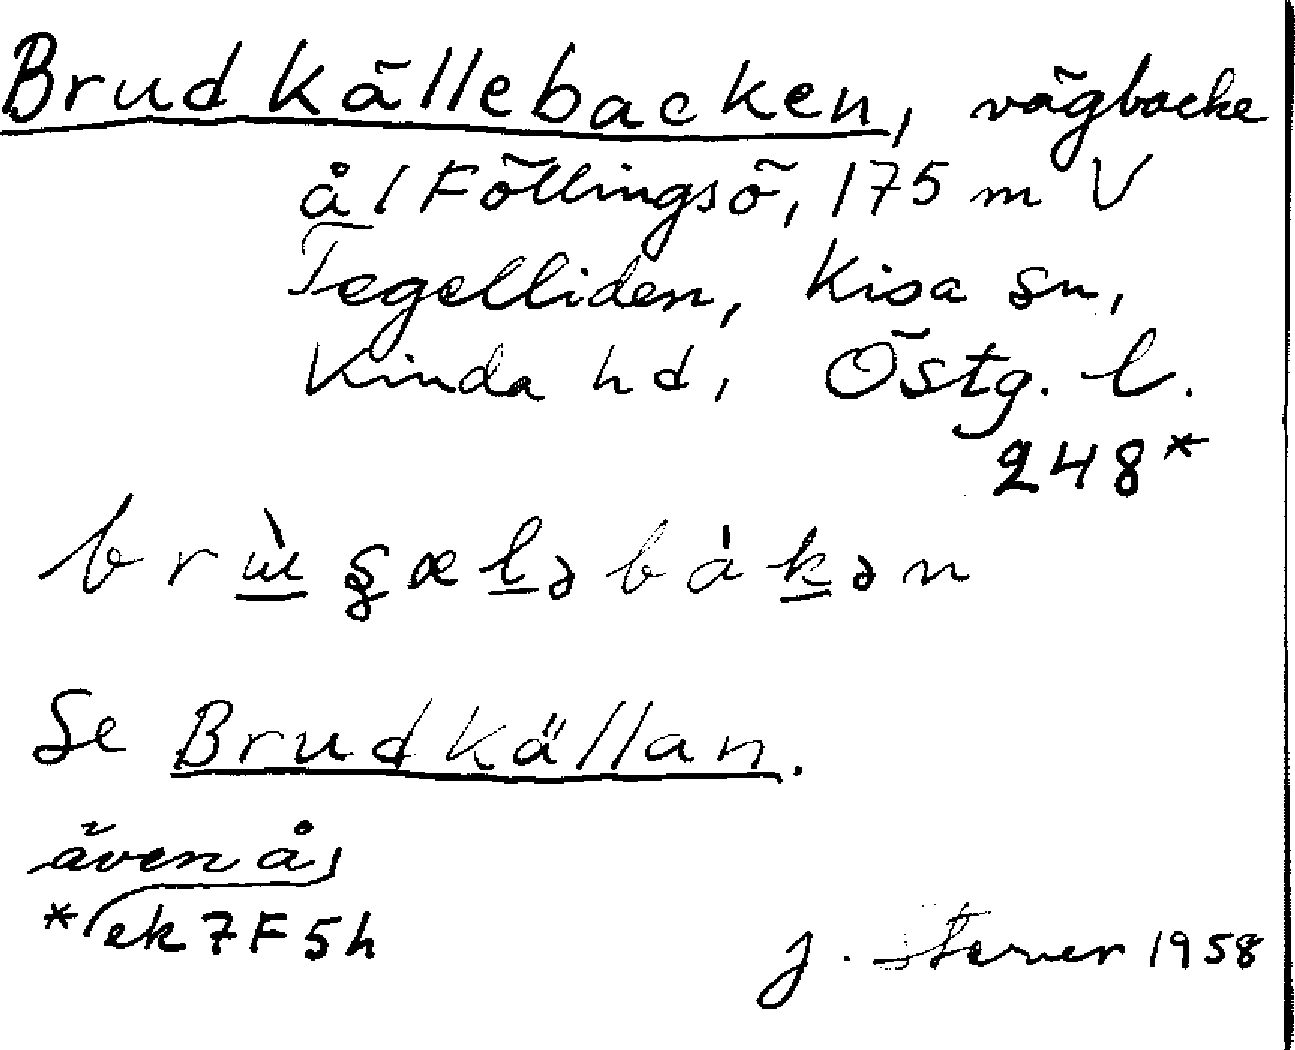 Brudkällebacken, vägbacke
å / Föllingsö, 175 m V
Tegelliden, Kisa sn,
Kinda hd, Östg. l.
248*
Se Brudkällan.
även å
*ek 7F5h
J. 1958